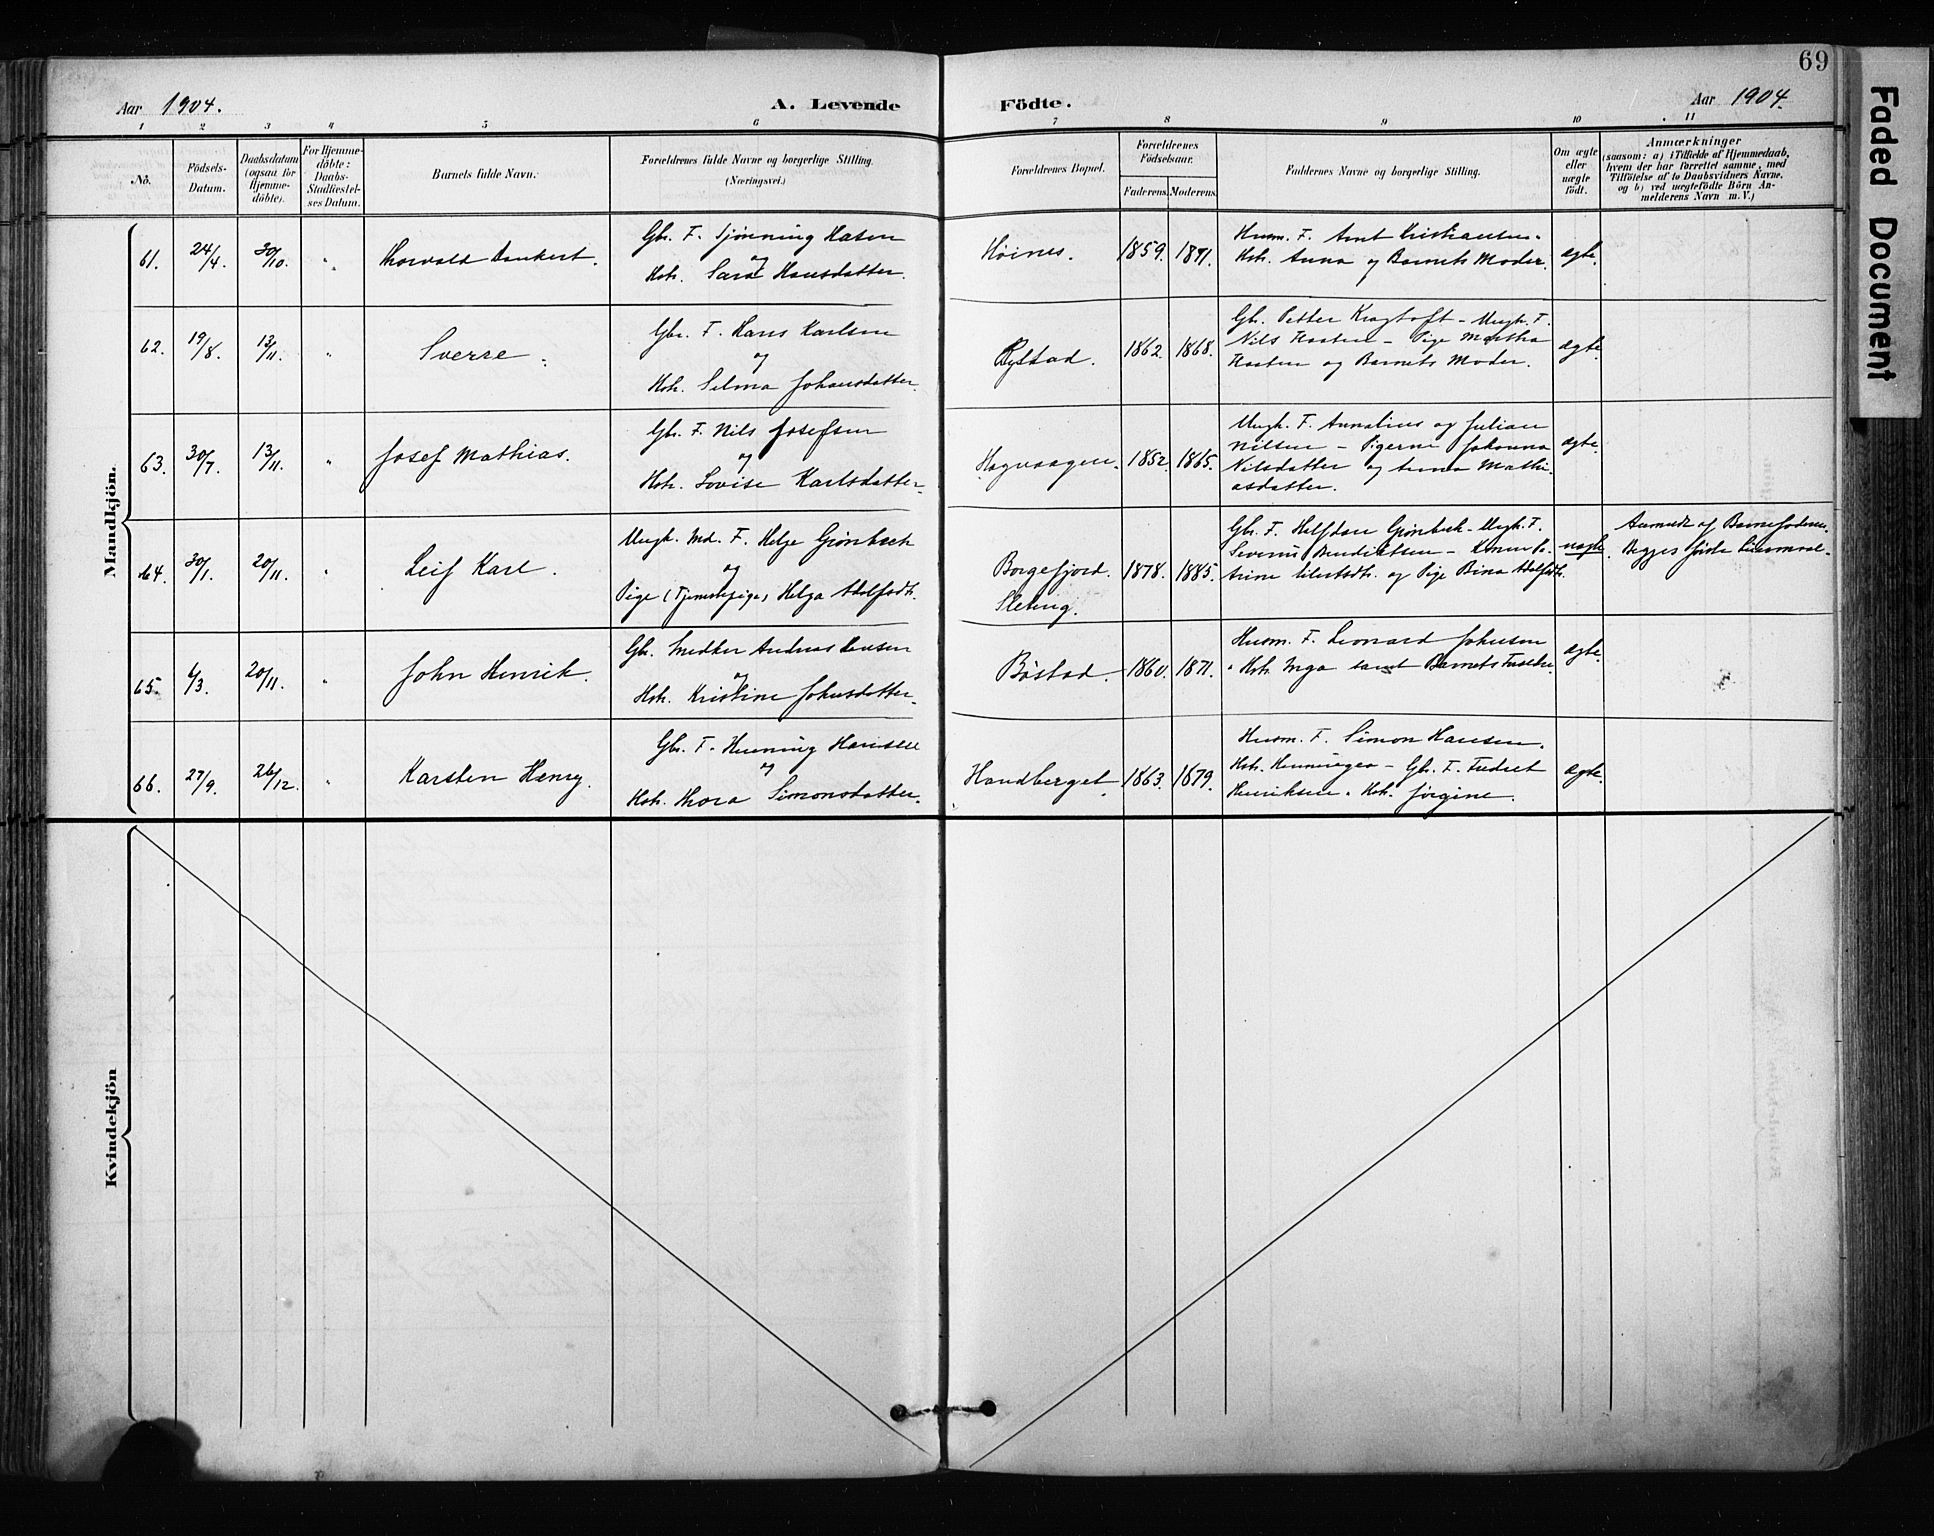 69
Faded Document
Aar 1904.
A. Levende Födte.
Aar 1904.
1 2 3 4 5 6 7 8 9 10 11
No.
Födsels-
Datum.
Daabsdatum
(ogsaa for
Hjemme-
döbte).
For Hjemme-
döbte:
Daabs-
Stadfæstel-
ses Datum.
Barnets fulde Navn.
Forældrenes fulde Navne og borgerlige Stilling.
(Næringsvei.)
Forældrenes Bopæl.
Forældrenes
Födselsaar.
Faderens. Moderens.
Faddernes Navne og borgerlige Stilling.
Om ægte
eller
uægte
födt.
Anmærkninger
(saasom: a) i Tilfælde af Hjemmedaab,
hvem der har forrettet samme, med
Tilföielse af to Daabsvidners Navne,
og b) ved uægtefödte Börn An-
melderens Navn m. V.)
Mandkjön.
61. 24/4. 30/10. " Thorvald Dankert.
Gbr. F. Hansen
og
Hstr. Sara Hansdatter.
Höines. 1859. 1871.
Husm. F. Arnt Kristiansen.
Hstr. Anna og Barnets Moder.
ægte.
62. 19/8. 13/11. " Sverre.
Gbr. F. Hans Karlsen
og
Hstr. Selma Johansdatter.
Rystad. 1862. 1868.
Gbr. Petter Kragtoft – Ungk. F.
Nils – Pige Martha
og Barnets Moder.
ægte.
63. 30/7. 13/11. " Josef Mathias.
Gbr. F. Nils Josefsen
og
Hstr. Lovise Karlsdatter.
Hagvaagen. 1852. 1865.
Ungk. F. Annalius og Julian
Nilsen – Pigerne Johanna
Nilsdatter og Anna Mathi-
asdatter.
ægte.
64. 30/1. 20/11. " Leif Karl.
Ungk. Md. F. Helge Grönbech
og
Pige (Tjenestepige) Helga Adolfsdtr.
Borgefjord.
1878. 1885.
Gbr. F. Grönbech – Ungk. F.
Severin Bendiktsen –
og Pige Bina Adolfsdtr.
uægte
Anmeldt af Barnefaderen.
Begges förste Leiermaal.
65. 6/3. 20/11. " John Henrik.
Gbr. Andreas Jensen
og
Hstr. Kristine Johnsdatter.
Böstad. 1860. 1871.
Husm. F. Leonard Johnsen
Hstr. Inga samt Barnets Fader.
ægte.
66. 27/9. 26/12. " Karsten Henry.
Gbr. F. Henning Hansen
og
Hstr. Thora Simonsdatter.
Handberget. 1863. 1879.
Husm. F. Simon Hansen.
Hstr. – Gbr. F. Fredrik
Henriksen. Hstr. Jörgine.
ægte.
Kvindekjön